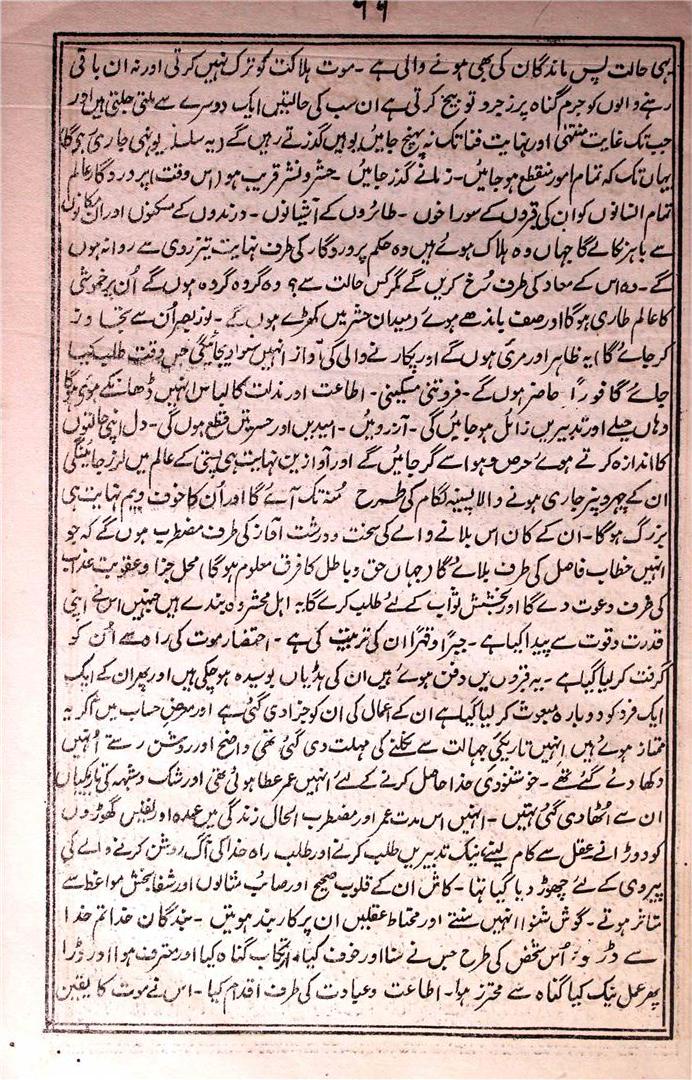 ۶۶
یہی حالت پس ماندگان کی بھی ہونے والی ہے ۔ موت ہلاکت کو ترک نہیں کرتی اور نہ ان باقی
رہنے والوں کو جرم گناہ پر زجر و توبیخ کرتی ہے ان سب کی حالتیں ایک دوسرے سے ملتی جلتی ہیں اور
جب تک غایت منتہیٰ اور نہایت فنا تک نہ پہنچ جائیں یوہیں گذرتے رہیں گے (یہ سلسلہ یونہی جاری رہیگا)
یہاں تک کہ تمام امور منقطع ہو جائیں۔ زمانے گذر جائیں ۔ حشر و نشر قریب ہو (اس وقت) پروردگار عالم
تمام انسانوں کو ان کی قبروں کے سوراخوں ۔ طائروں کے آشیانوں ۔ درندوں کے مسکنوں اور ان مکانوں
سے باہر نکالے گا جہاں وہ ہلاک ہوئے ہیں وہ حکم پروردگار کی طرف نہایت تیز روی سے روانہ ہوں
گے ۔ وہ اس کے معاد کی طرف رُخ کریں گے مگر کس حالت سے؟ وہ گروہ گروہ ہوں گے اُن پر خموشی
کا عالم طاری ہو گا اور صف باندھے ہوئے (میدان حشر میں کھڑے ہوں گے ۔ نور بصر اُن سے تجاوز
کر جائے گا) یہ ظاہر اور مرئی ہوں گے اور پکارنے والی کی آواز انہیں سنوا دیجائیگی جس وقت طلب کیا
جائے گا فوراً حاضر ہوں گے ۔ فروتنی مسکینی ۔ اطاعت اور مذلت کا لباس انہیں ڈھانکے ہوئے ہو گا
وہاں حیلے اور تدبیریں زائل ہو جائیں گی ۔ آرزوئیں ۔ امیدیں اور حسرتیں قطع ہوں گی ۔ دل اپنی حالتوں
کا اندازہ کرتے ہوئے حرص و ہوا سے گر جائیں گے اور آوازیں نہایت ہی پستی کے عالم میں لرز جائینگی
ان کے چہرو پر جاری ہونے والا پسینہ لگام کی طرح مُنہ تک آئے گا اور اُن کا خوف و بیم نہایت ہی
بزرگ ہوگا ۔ ان کے کان اس بلانے والے کی سخت و درشت آواز کی طرف مضطرب ہوں گے کہ جو
انہیں خطاب فاصل کی طرف بلائے گا (جہاں حق و باطل کا فرق معلوم ہوگا) محل جزا و عقوبت عذاب
کی طرف دعوت دے گا اور بخشش ثواب کے لئے طلب کرے گا یہ اہل محشر وہ بندے ہیں جنہیں اس نے اپنی
قدرت و قوت سے پیدا کیا ہے ۔ جبراً و قہراً ان کی تربیت کی ہے ۔ احتضار موت کی راہ سے اُن کو
گرفت کر لیا گیا ہے ۔ یہ قبروں میں دفن ہوئے ہیں ان کی ہڈیاں بوسیدہ ہو چکی ہیں اور پھر ان کے ایک
ایک فرد کو دوبارہ مبعوث کر لیا گیا ہے ان کے اعمال کی ان کو جزا دی گئی ہے اور معرض حساب میں آکر یہ
ممتاز ہوئے ہیں انہیں تاریکی جہالت سے نکلنے کی مہلت دی گئی تھی واضح اور روشن رستے اُنہیں
دکھا دئے گئے تھے ۔ خوشنودی خدا حاصل کرنے کے لئے انہیں عمر عطا ہوئی تھی اور شک و شبہہ کی تاریکیاں
ان سے اُٹھا دی گئی تہیں ۔ انہیں اس مدت عمر اور مضطرب الحال زندگی میں عمدہ اور نفیس گھوڑوں
کو دوڑانے عقل سے کام لینے نیک تدبیریں طلب کرنے اور طلب راہ خدا کی آگ روشن کرنے والے کی
پیروی کے لئے چھوڑ دیا گیا تہا ۔ کاش ان کے قلوب صحیح اور صائب مثالوں اور شفا بخش مواعظ سے
متاثر ہوتے ۔ گوش شنوا انہیں سنتے اور محتاط عقلیں ان پر کار بند ہوتیں ۔ بندگان خدا تم خدا
سے ڈرو اُس شخص کی طرح جس نے سنا اور خوف کیا ارتکاب گناہ کیا اور معترف ہوا اور ڈرا
پھر عمل نیک کیا گناہ سے محترز ہوا ۔ اطاعت و عبادت کی طرف اقدام کیا ۔ اس نے موت کا یقین